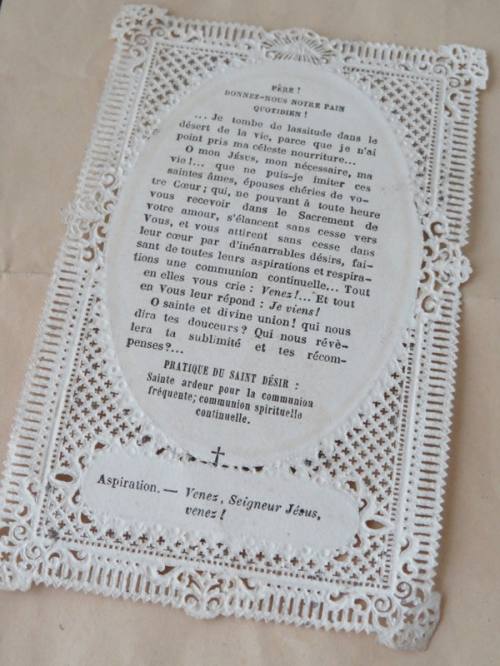 PÈRE !
DONNEZ-NOUS NOTRE PAIN
QUOTIDIEN !
... Je tombe de lassitude dans le
désert de la vie, parce que je n'ai
point pris ma céleste nourriture...
O mon Jésus, mon nécessaire, ma
vie !... que ne puis-je imiter ces
saintes âmes, épouses chéries de vo-
tre Cœur ; qui, ne pouvant à toute heure
vous recevoir dans le Sacrement de
votre amour, s'élancent sans cesse vers
Vous, et vous attirent sans cesse dans
leur cœur par d'inénarrables désirs, fai-
sant de toutes leurs aspirations et respira-
tions une communion continuelle... Tout
en elles vous crie : Venez !... Et tout
en Vous leur répond : Je viens !
O sainte et divine union ! qui nous
dira tes douceurs ? Qui nous révè-
lera ta sublimité et tes récom-
penses ?...
PRATIQUE DU SAINT DÉSIR :
Sainte ardeur pour la communion
fréquente; communion spirituelle
continuelle.
Aspiration. — Venez, Seigneur Jésus,
venez !